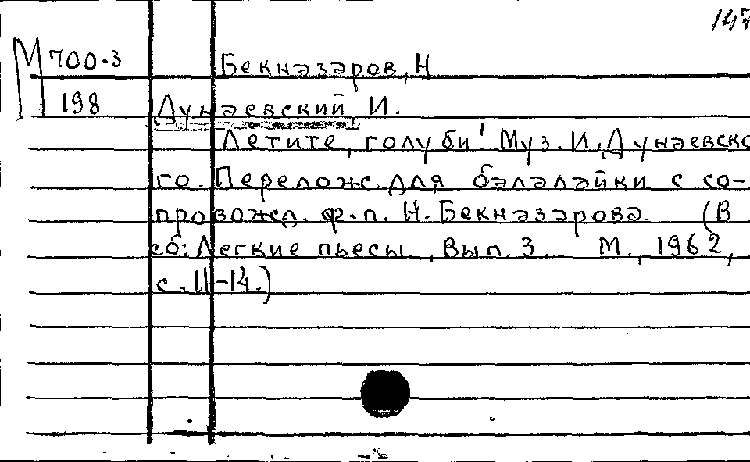 147
М 700-3 Бекназаров, Н
198 Дунаевский, И.
Летите, голуби! Муз. И. Дунаевско
го. Перелож. для балалайки с со-
провожд. ф.-п. Н. Бекназарова. (В
сб: Легкие пьесы, Вып. 3. М., 1962,
с. 11-14.)